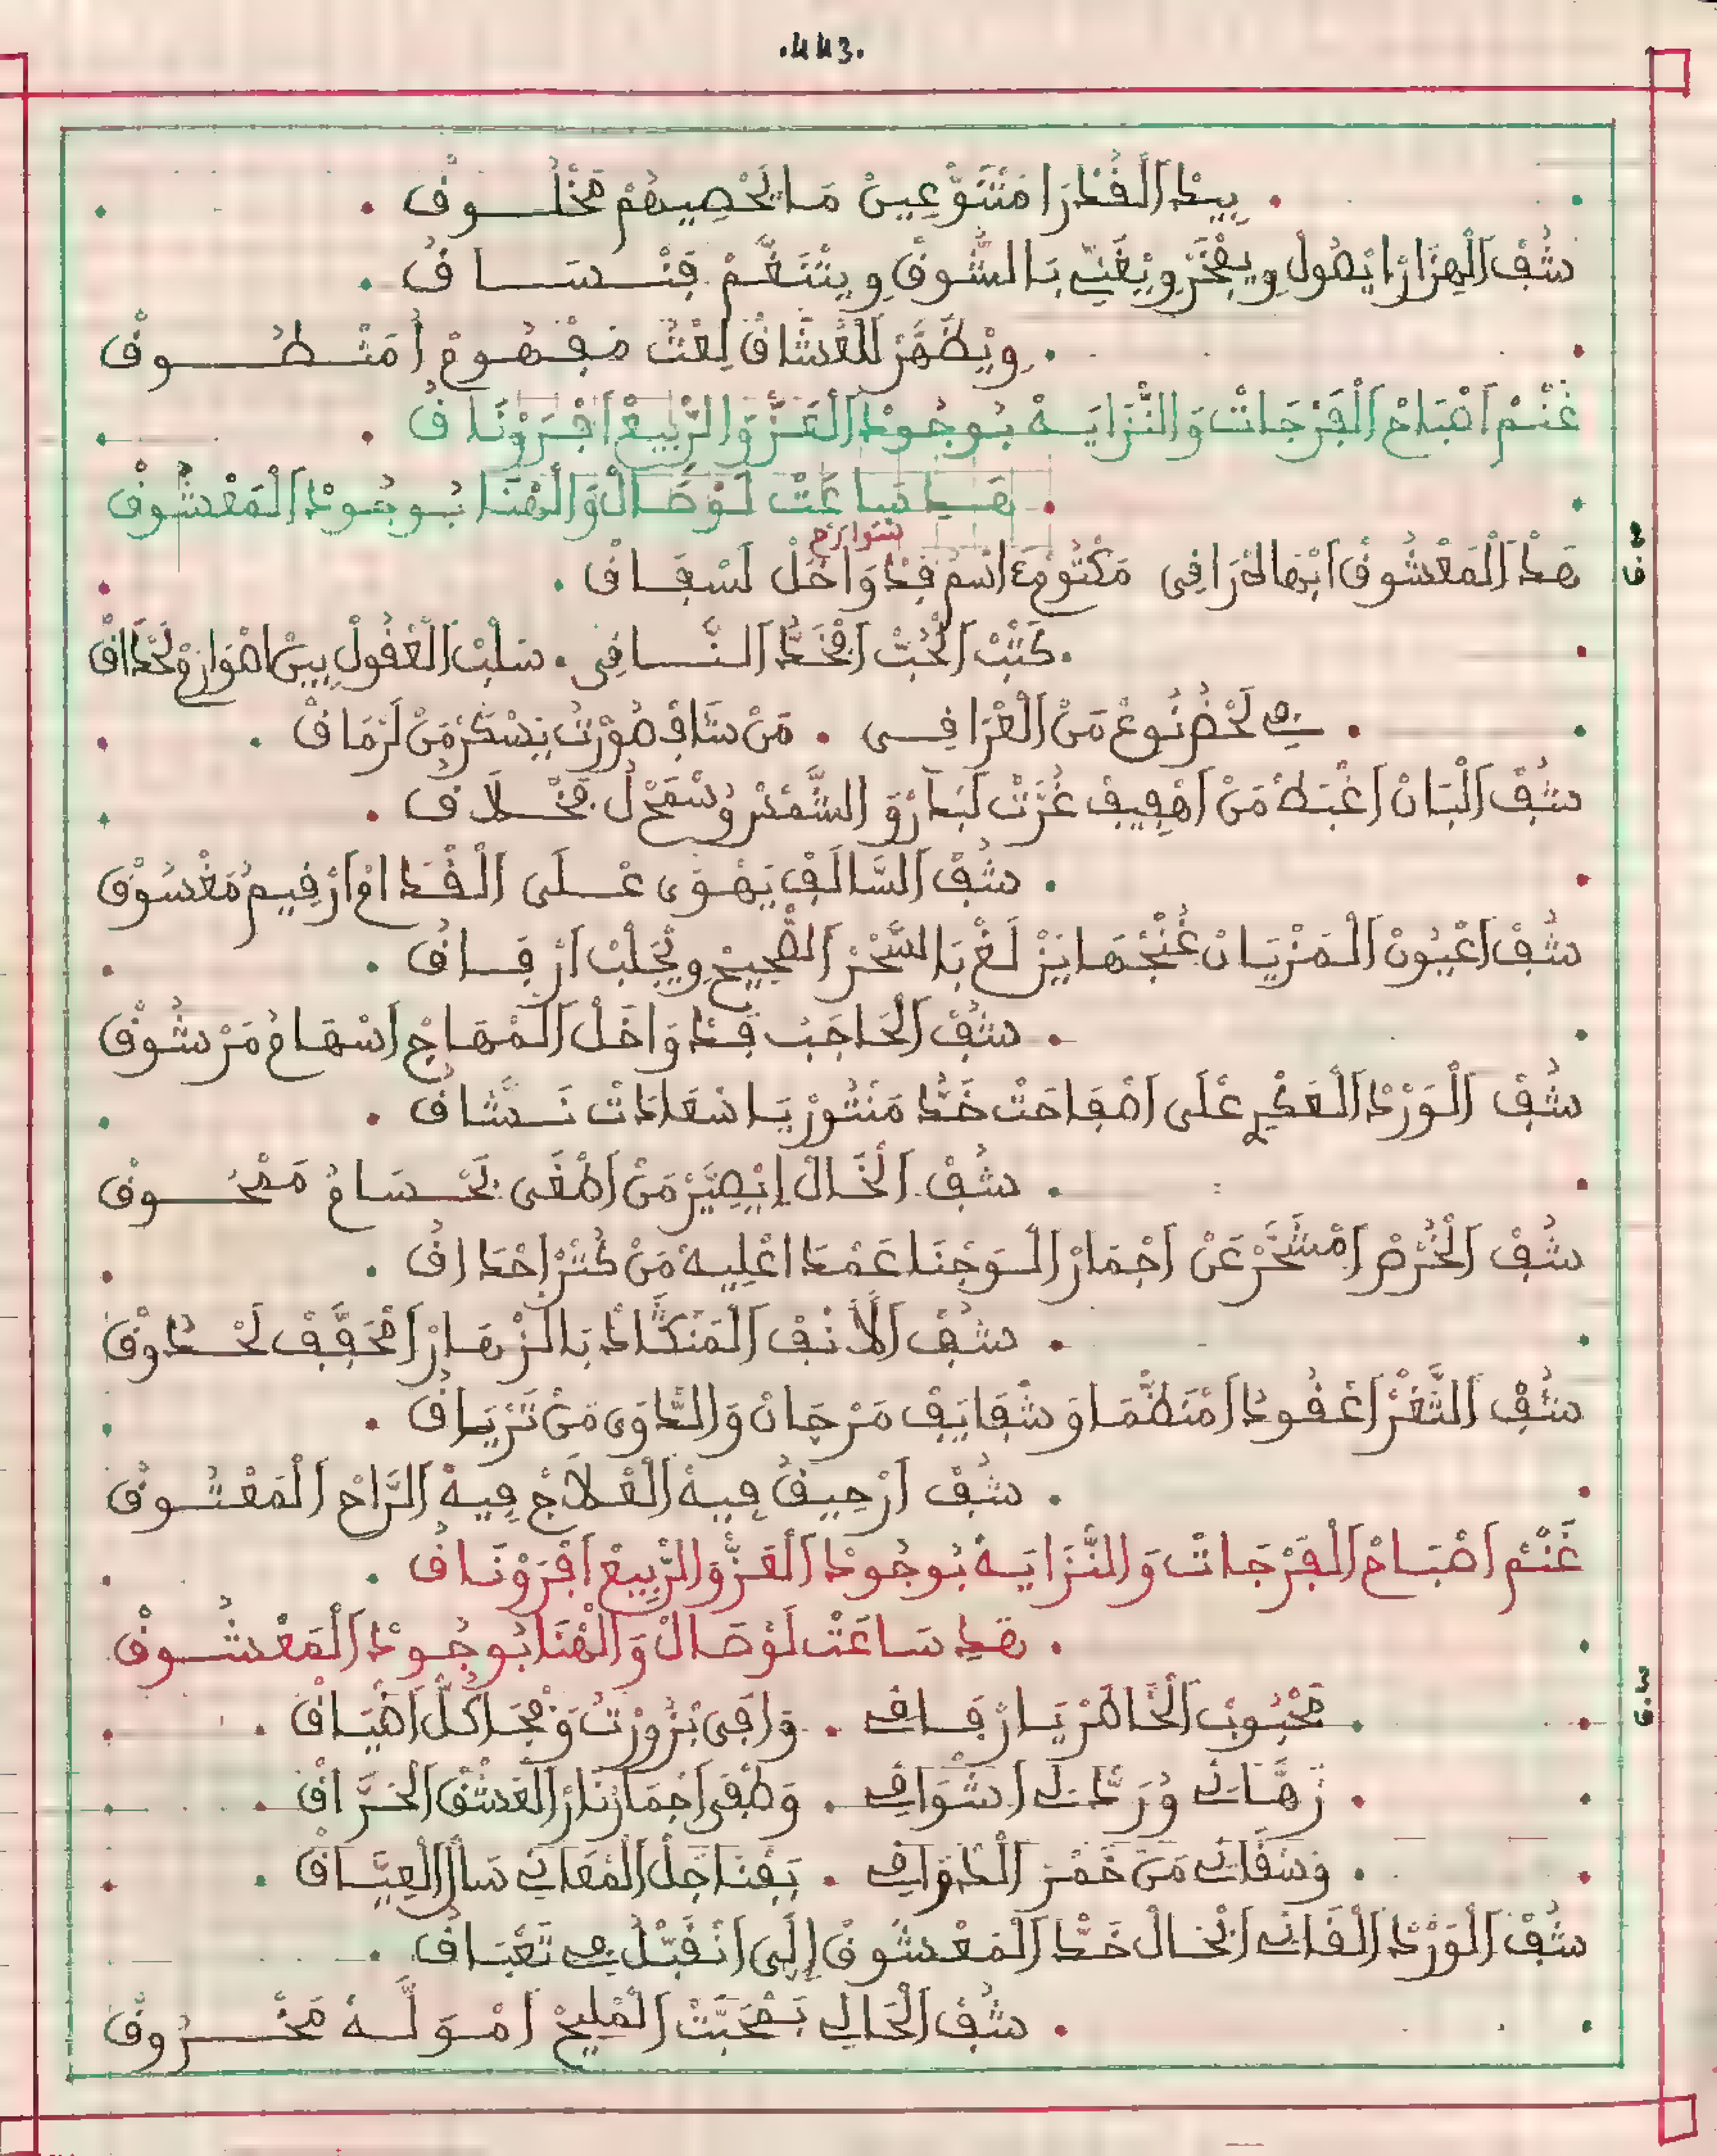 .443.
بِيدْ اَلْقُدْرَا مَتْنَوّْعِينْ مَا يَحْصِيهُمْ مَخْلُوقْ
شُفْ اَلْهِزَارْ ايْصُولْ وِيفْخَرْ وِيْغَنِّي بَالشُّوقْ وِيتْنَغَّمْ فَنْسَاقُ
وِيْظَهَّرْ لَلْعُشَّاقْ لُغْتُ مَفْهُومْ اُمَنْطُوقْ
غَنْمْ اَصْبَاحْ اَلْفَرْجَاتْ وَالنّْزَايَهْ بُوجُودْ اَلْعَزّْ وَالرّْبِيعْ اَفْرَوْنَاقُ
هَدِ سَاعَتْ لَوْصَالْ وَالْهْنَا بُوجُودْ اَلْمَعْشُوقْ
ف2
هَدْ اَلْمَعْشُوقْ اَبْهَا لَحْرَاقِي مَكْتُومَ اَسْمُ فْدْوَاخَلْ لَشْفَاقْ
شوارع
كَتْبْ اَلْحُبّْ اَفْخَدّْ اَلنَّسَاقِي . سَلْبْ اَلْعْقُولْ بِينْ اصْوَارْمْ لَحْدَاقْ
لَحْضْ نُوعْ مَنْ اَلْغْرَاقِي . مَنْ شَافْ صُورْتُ يَسْكَرْ مَنْ لَرْمَاقْ
شُفْ اَلْبَانْ اَغْبَطْ مَنْ اَهْفِيفْ غُرَّتْ لَبْدَرْ وَ الشَّمْسْ وُسْمَحْ لُ مَخْلَاقْ
شُفْ اَلسَّالَفْ يَهْوَى عْلَى اَلْقْدَامْ اَرْقِيمْ مَغْسُوقْ
شُفْ اَعْيُونْ اَلْمَزْيَانْ غُنْجْهَا يَزْلَغْ بَالسّْحَرْ اَلصّْحِيحْ وِيْجَلْبْ اَرْفَاقُ
شُفْ اَلْحَاجَبْ فْدْوَاخَلْ اَلْمْهَاجْ اَسْهَامْ مَرْشُوقْ
شُفْ اَلْوَرْدْ اَلْعَكْرِي عْلَى اَصْفَاحَتْ خَدّْ مَنْتُورْ يَا سَعَادَاتْ نَشَّاقُ
شُفْ اَلْخَالْ اِيْصِيَّرْ مَنْ اَطْغَى بَحْسَامْ مَمْحُوقْ
شُفْ اَلْخُرْصْ اَمْشَخَّرْ عَنْ اَجْمَارْ اَلْوَجْنَا عَمْدَا اعْلِيهْ مَنْ كُتْرْ اَحْدَاقُ
شُفْ اَلَأنْفْ اَلْمَنْكَّادْ بَالزْهَارْ اَمْحَقَّقْ لَحْدُوقْ
شُفْ اَلثَّغْرْ اَعْقُودْ اَمْنَظّْمَا وَ شْفَايَفْ مَرْجَانْ وَالدَّاوَى مَنْ تَرْيَاقُ
شُفْ اَرْحِيقُ فِيهْ اَلْعْلَاجْ فِيهْ اَلرَّاحْ اَلْمَعْتُوقْ
غَنْمْ اَصْبَاحْ اَلْفَرْجَاتْ وَالنّْزَايَهْ بُوجُودْ اَلْعَزّْ وَالرّْبِيعْ اَفْرَوْنَاقُ
هَدِ سَاعَتْ لَوْصَالْ وَالْهْنَا بُوجُودْ اَلْمَعْشُوقْ
ف3
مَحْبُوبْ اَلْخَاطَرْ يَا رْفَاقِي . وَافَى بْزُورْتُ وَمْحَا كُلّْ اَضْيَاقْ
زَهَّانِي وُرَدّْ لِي اَشْوَاقِي . وَطْفَى اَجْمَارْ نَارْ اَلْعَشْقْ اَلْحَرَّاقْ
وَسْقَانِي مَنْ خَمْرْ اَلْدْوَاقِي . يَفْنَاجَلْ اَلْمْعَانِي سَالْ اَلْعِيَّاقْ
شُفْ اَلْوَرْدْ اَلْقَانِي اَبْحَالْ خَدّْ اَلْمَعْشُوقْ اِلَى اَنْقَبَّلُ فِي تَعْبَاقُ
شُفْ اَلْحَالِي بَمْحَبَّتْ اَلْمْلِيحْ اَمْوَلَّهْ مَحْرُوقْ